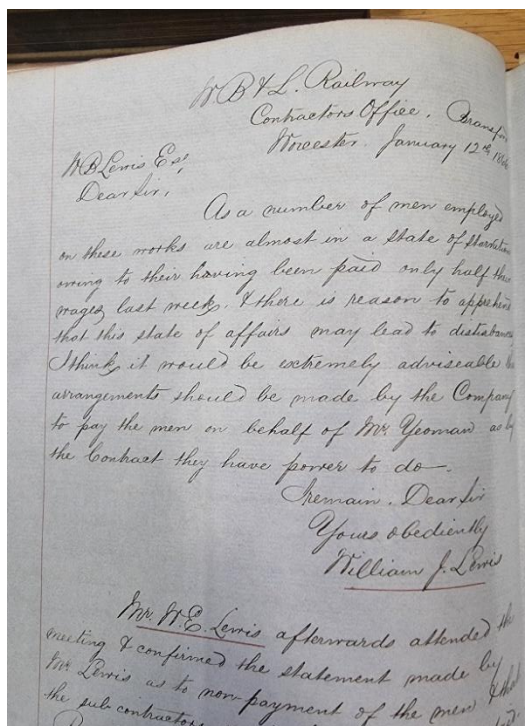 W. B & L. Railway
Contractors Office, Bransfor
Worcester. January 12th 186
W B Lewis Esq,
Dear Sir,
As a number of men employed
on these works are almost in a state of starvation
owing to their having been paid only half their
wages last week, & there is reason to apprehend
that this state of affairs may lead to disturbance
I think it would be extremely adviseable
arrangements should be made by the Company
to pay the men on behalf of Mr. Yeoman as by
the Contract they have power to do.
I remain, Dear Sir
Yours obediently
William J. Lewis
Mr. W. E. Lewis afterwards attended the
meeting & confirmed the statement made by
Mr Lewis as to non-payment of the men & that
the sub-contractors